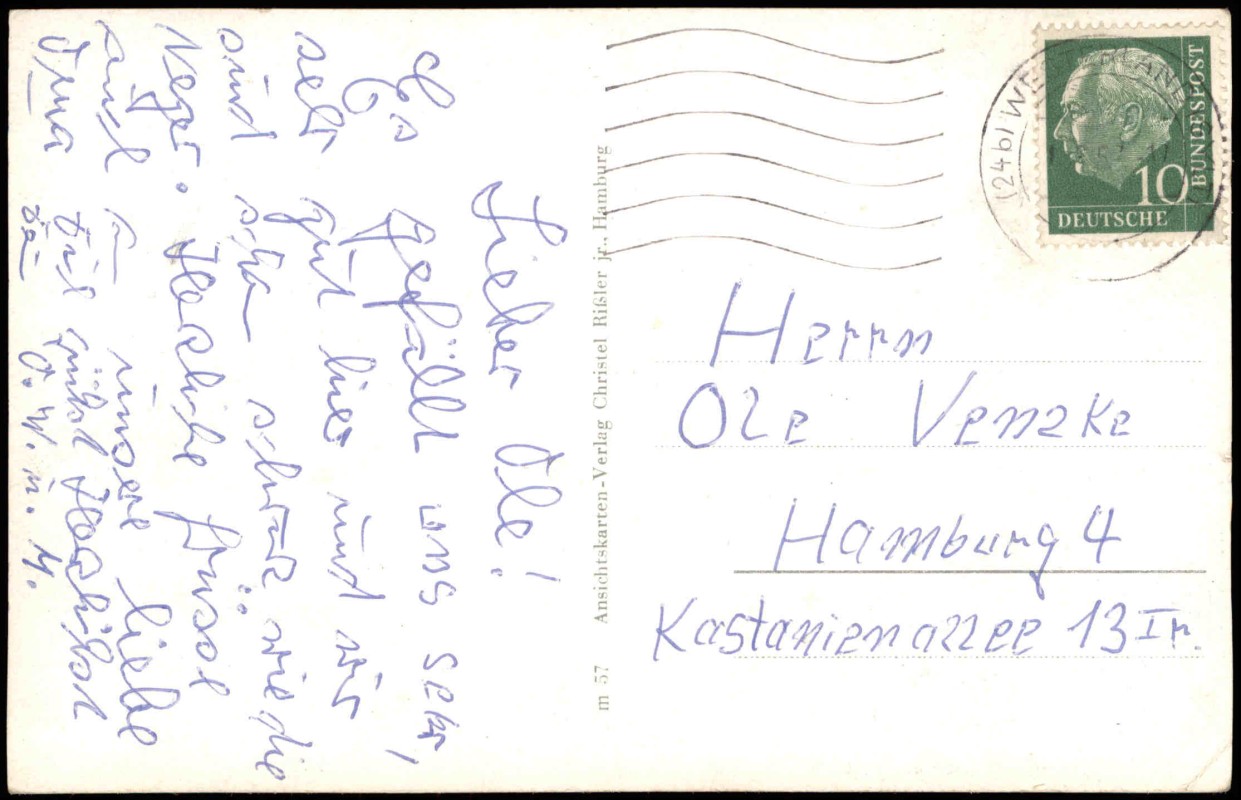 Lieber Ole!
Es gefällt uns sehr,
sehr gut hier und wir
sind schon schwarz wie die
Neger. Herzliche Grüsse
auch an unsere liebe
Oma
und Herzlichst
O. u.
Herrn
Ole Venzke
Hamburg 4
Kastanienallee 13 Ir.
m 57 Ansichtskarten-Verlag Christel Rißler jr., Hamburg
(24b) WE
10
DEUTSCHE
BUNDESPOST